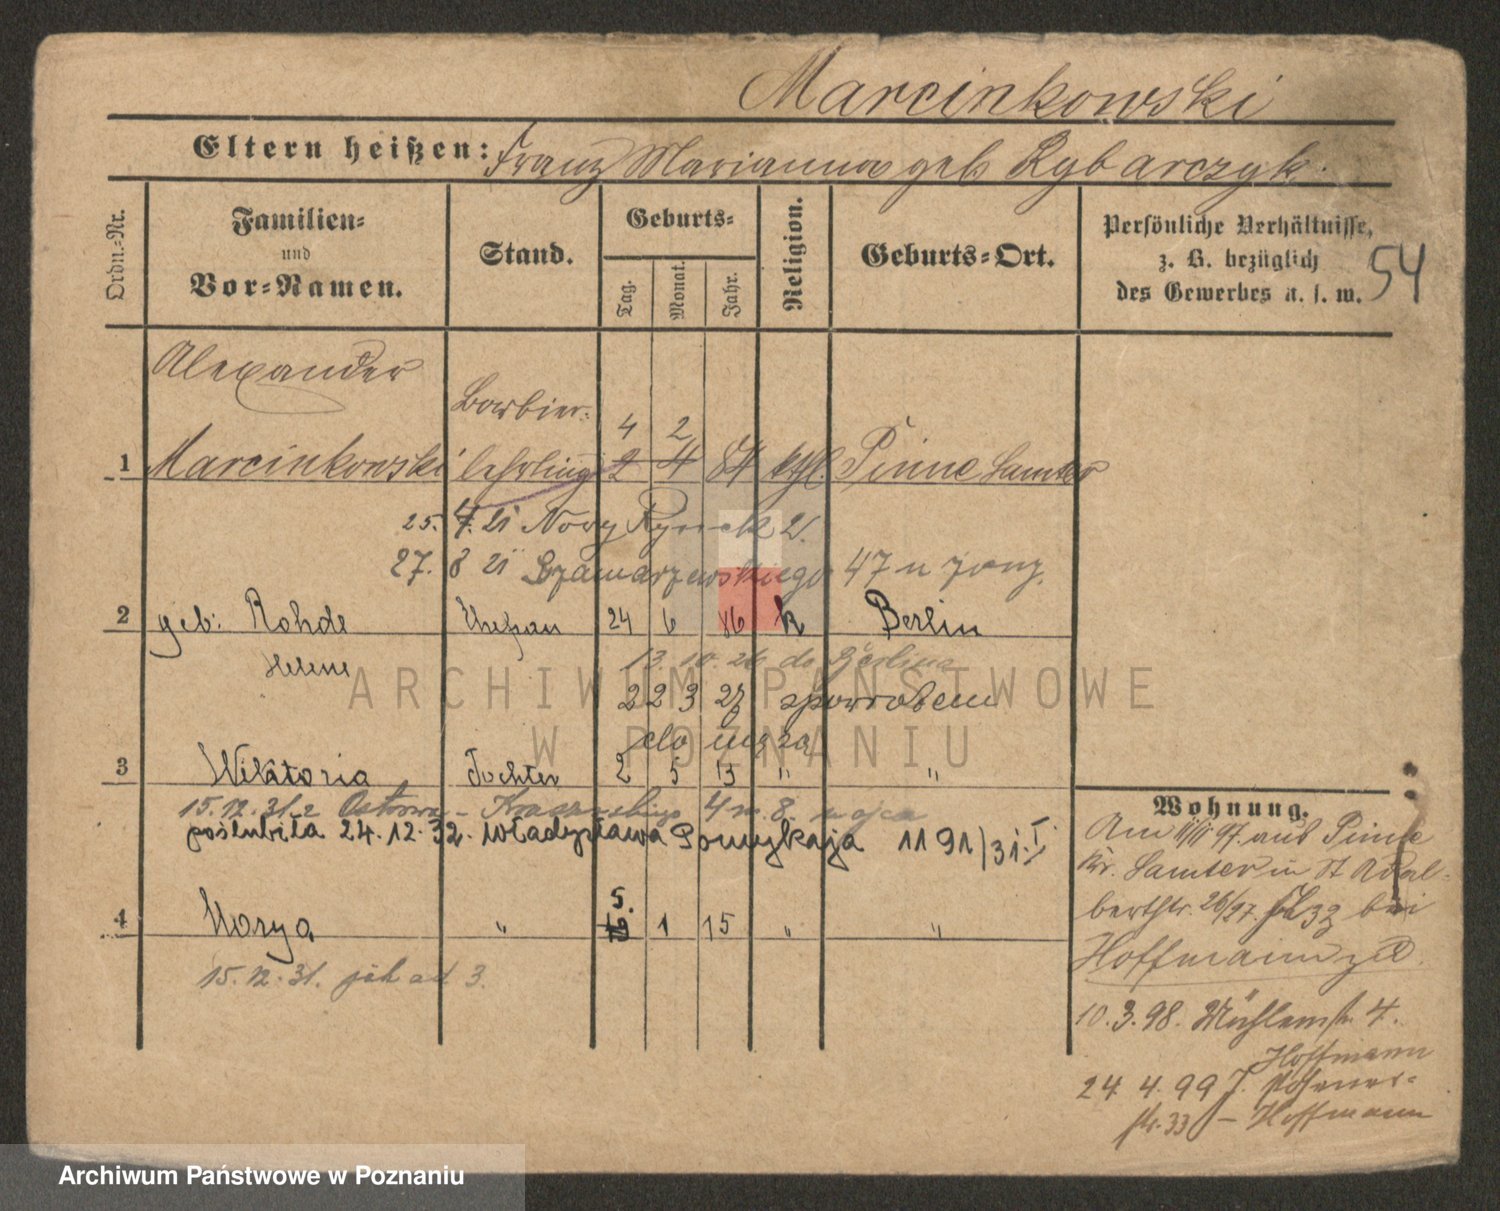 Marcinkowski
Eltern heißen: Franz Marianna geb Rybarczyk.
Ordn.-Nr.
Familien-
und
Vor-Namen.
Stand.
Geburts-
Tag.
Monat.
Jahr.
Religion.
Geburts-Ort.
Persönliche Verhältnisse,
z. B. bezüglich
des Gewerbes u. s. w.
54
Alexander
Barbier-
4 2
1 Marcinkowski lehrling 2 4 84 kth. Pinne Samter
25. 4. 21 Nowy Rynek 2.
27. 8 21 Szamarzewskiego 47 u
2 geb: Rohde Ehefrau 24 6 86 k Berlin
Helene
13. 10. 26 do Berlina
22 3 27 z powrotem
do męża
3 Wiktoria Tochter 2 5 13 " "
15. 12. 31. z Kraszewskiego 4 m. 8. u ojca
poślubiła 24. 12. 32. Władysława Pomykaja 1191/31. I.
5.
4 Marya " 13 1 15 " "
15. 12. 31. jak ad 3.
Wohnung.
Am 97. aus Pinne
Kr. Samter in St Adal-
bertstr. 26/27. bei
Hoffmann
10. 3. 98. Mühlenstr. 4.
Hoffmann
24 4. 99 Posener-
str. 33 – Hoffmann
ARCHIWUM PAŃSTWOWE
W POZNANIU
Archiwum Państwowe w Poznaniu